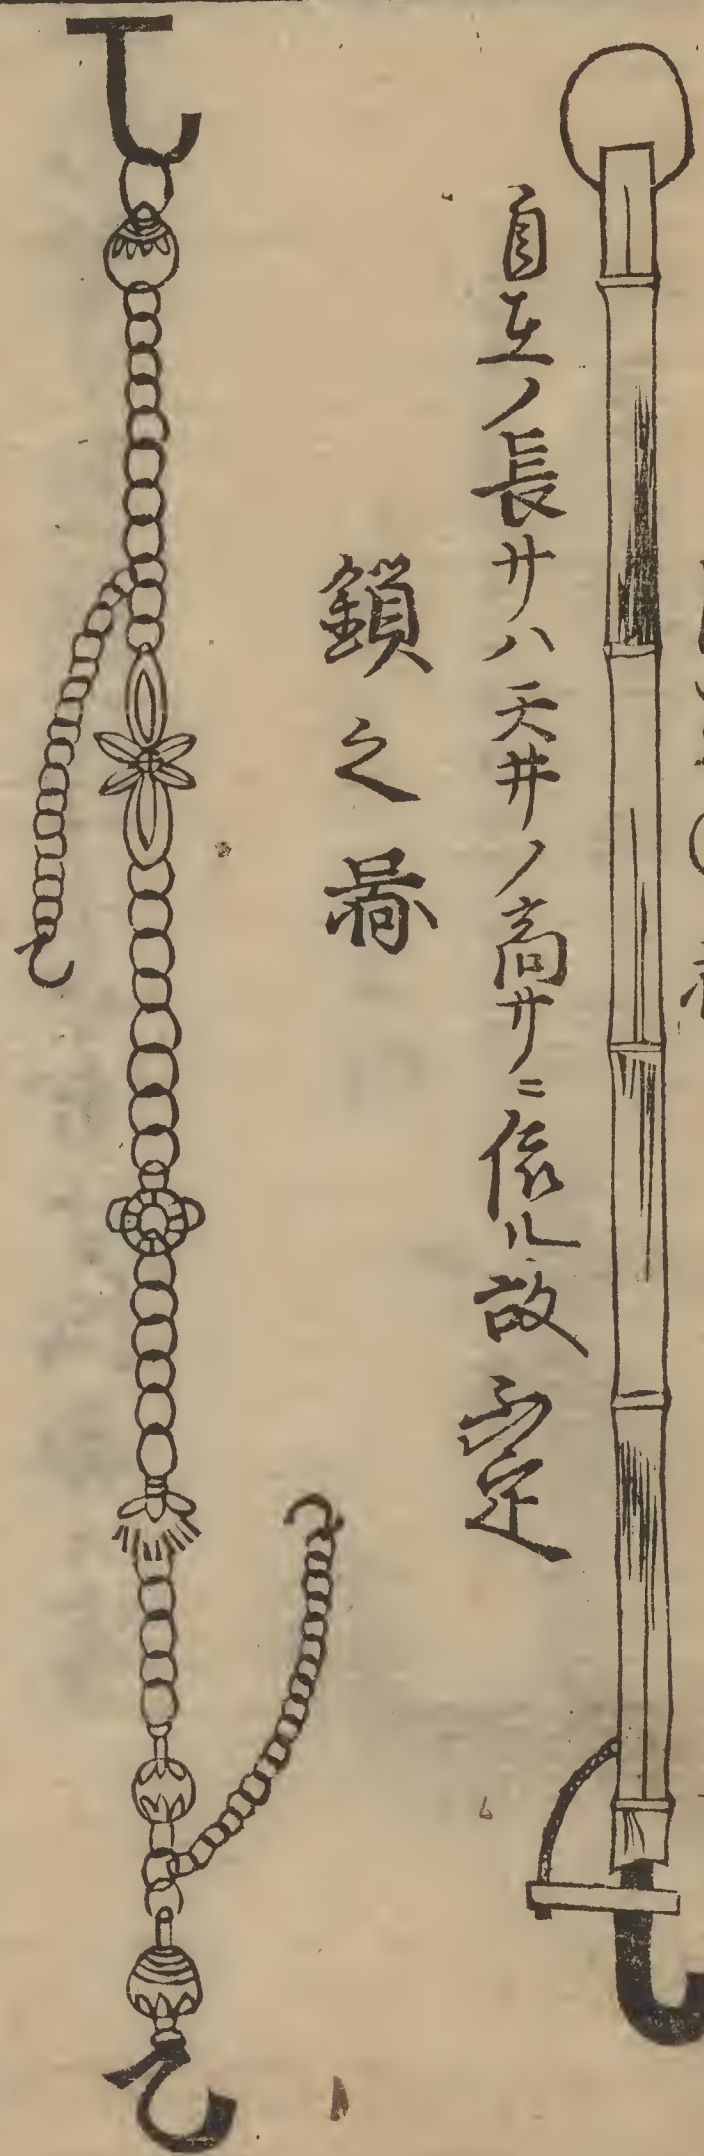 自在ノ長サハ天井ノ高サニ依ル故不定
鎖之啚